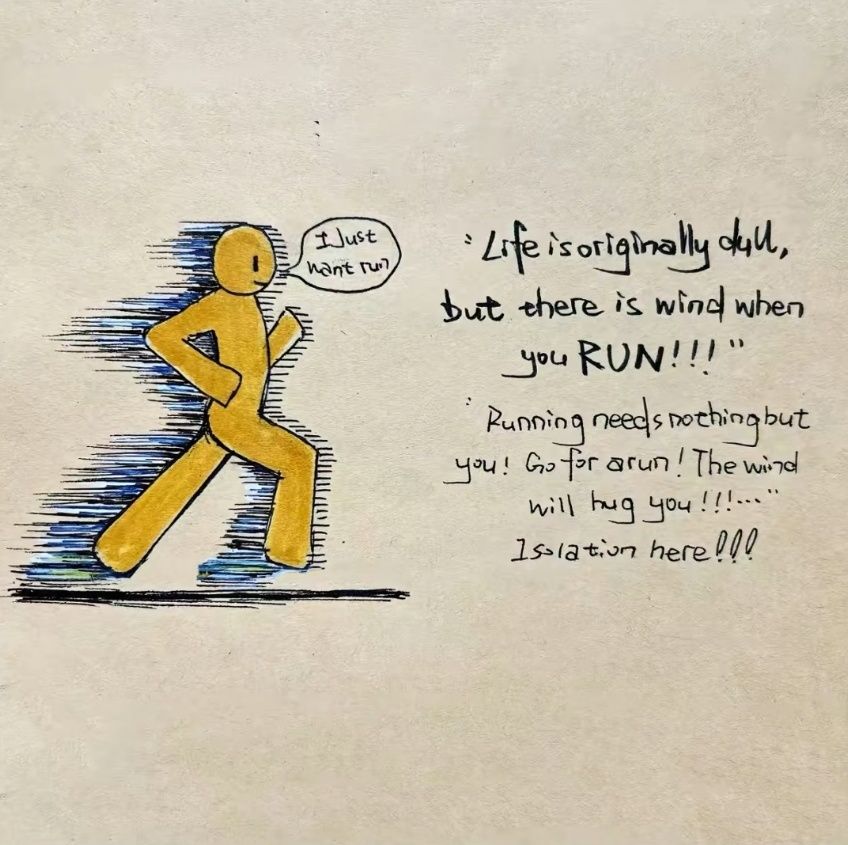 I Just
want run
"Life is originally dull,
but there is wind when
you RUN!!!"
"Running needs nothing but
you! Go for a run! The wind
will hug you!!!..."
Isolation here!!!